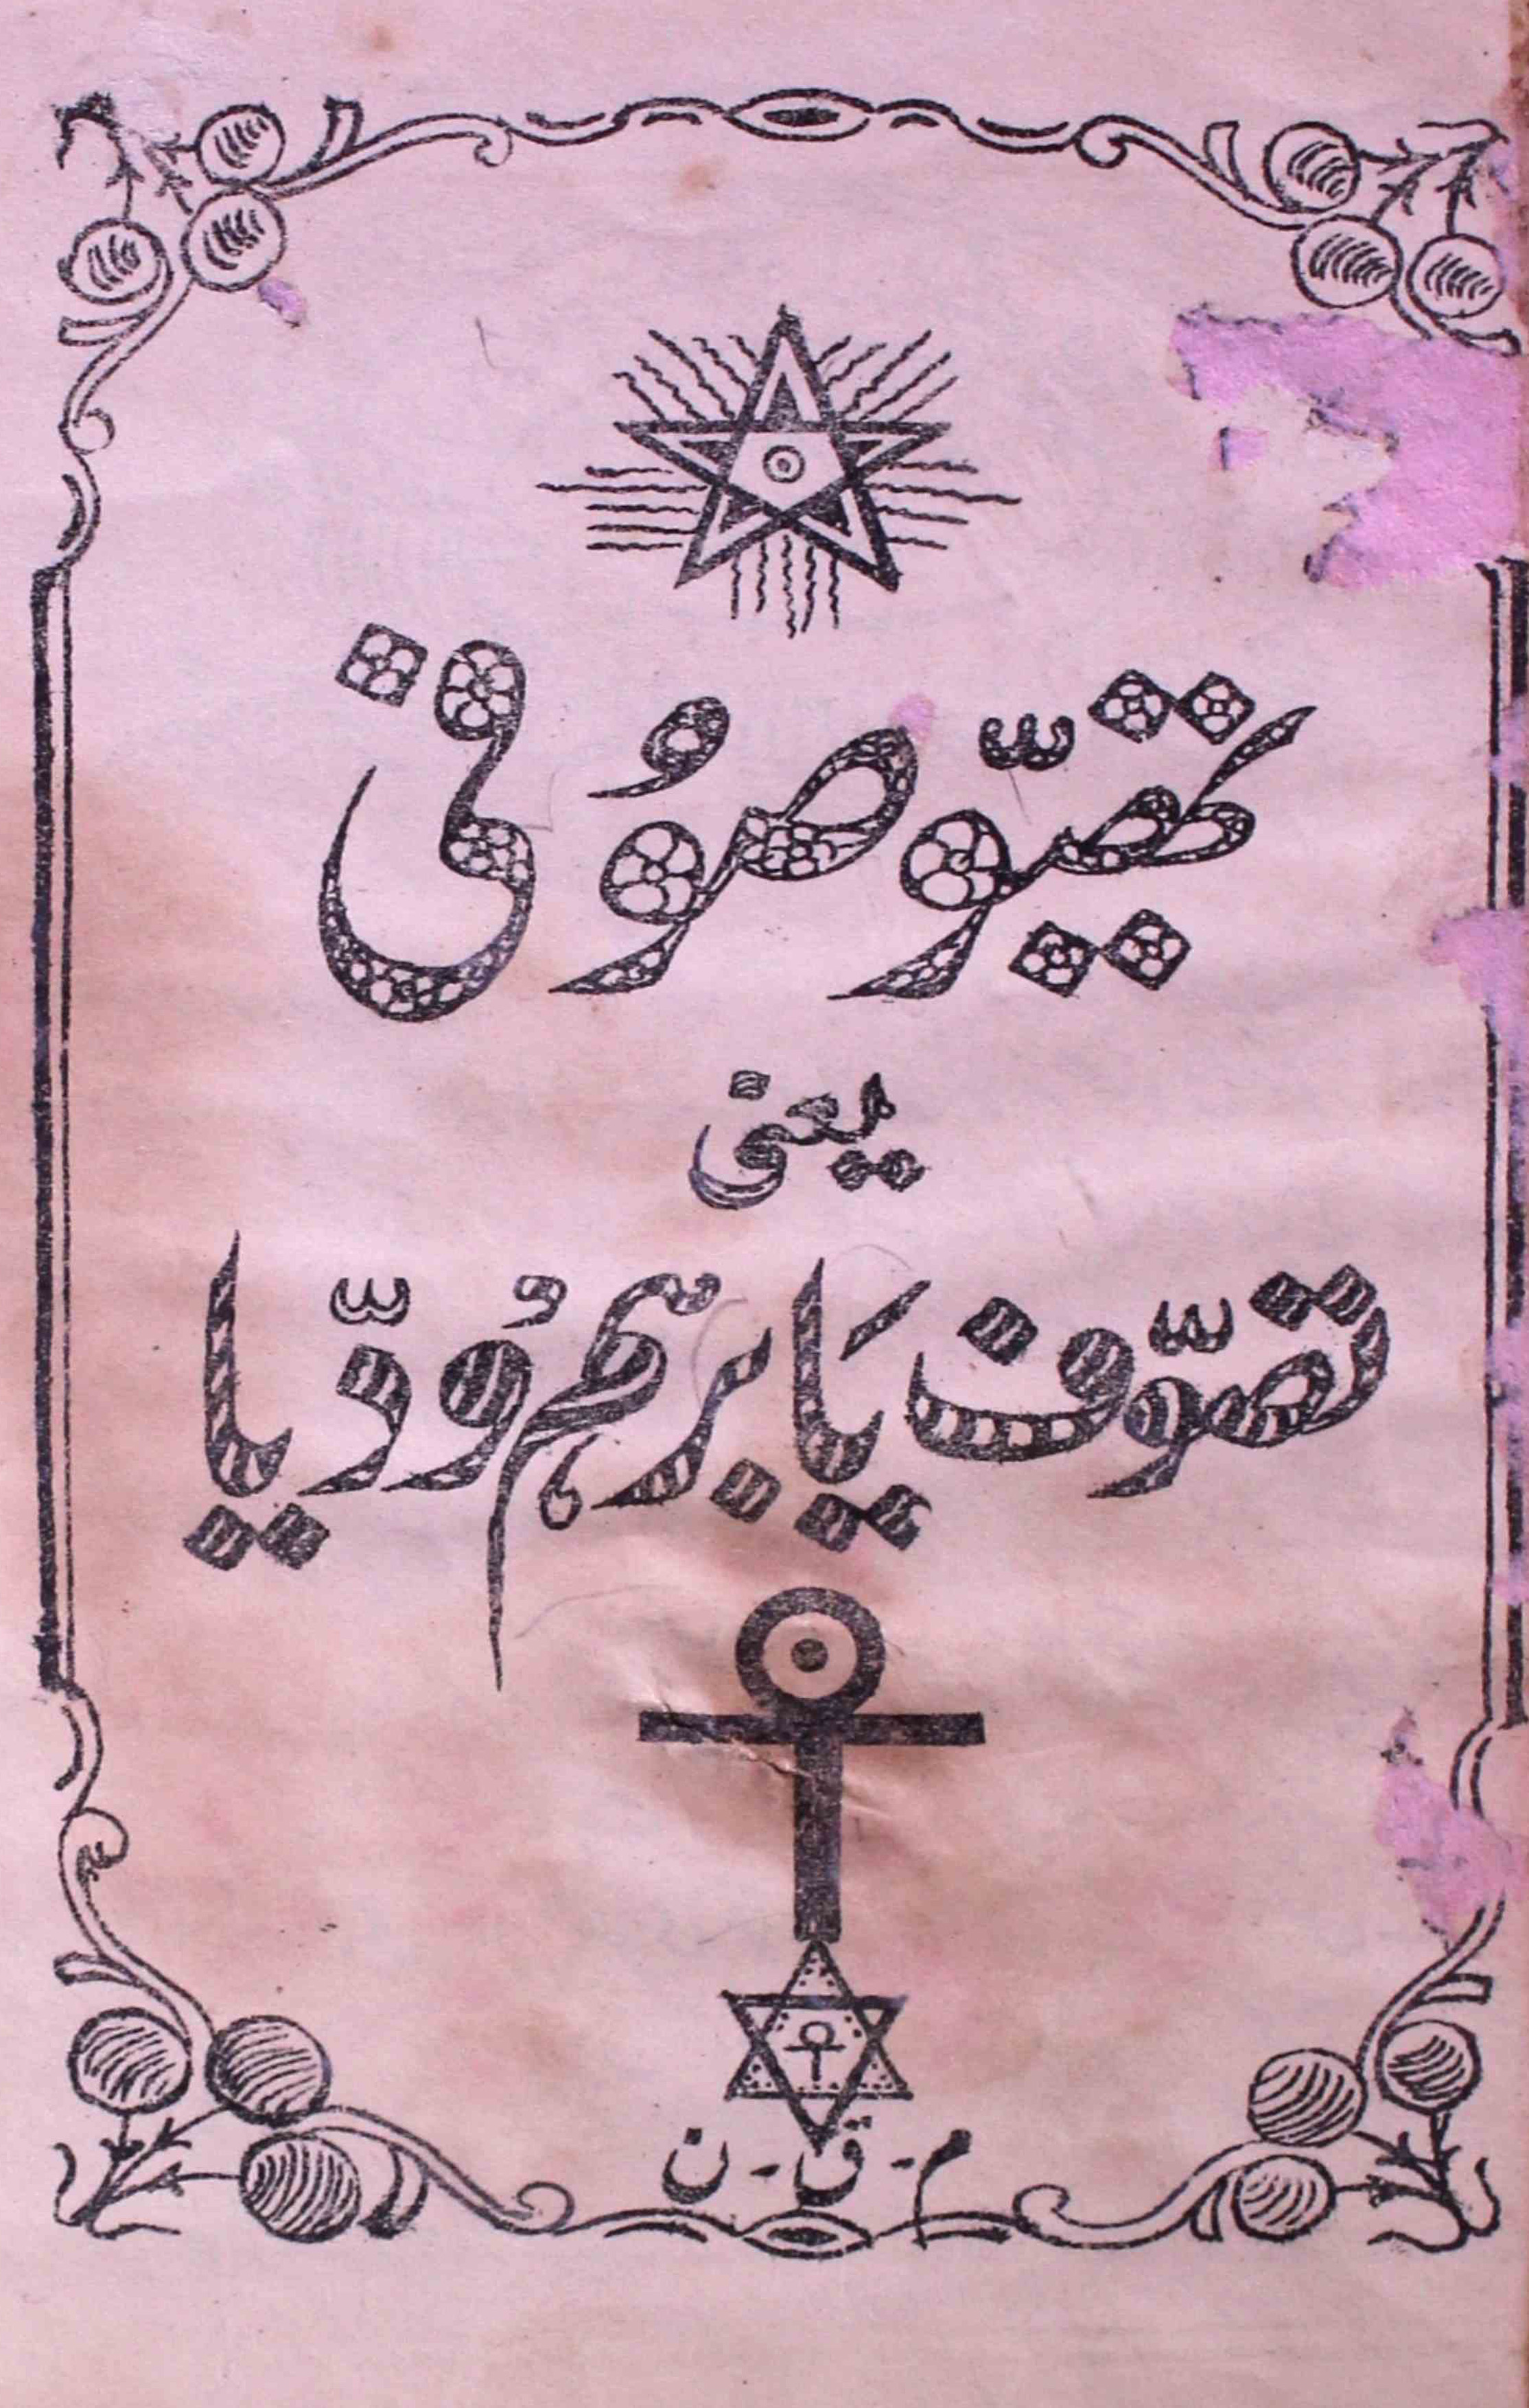 تھیّوصُوفی
یعنی
تصوّف یَا برہم وُدّیا
م - ق - ن